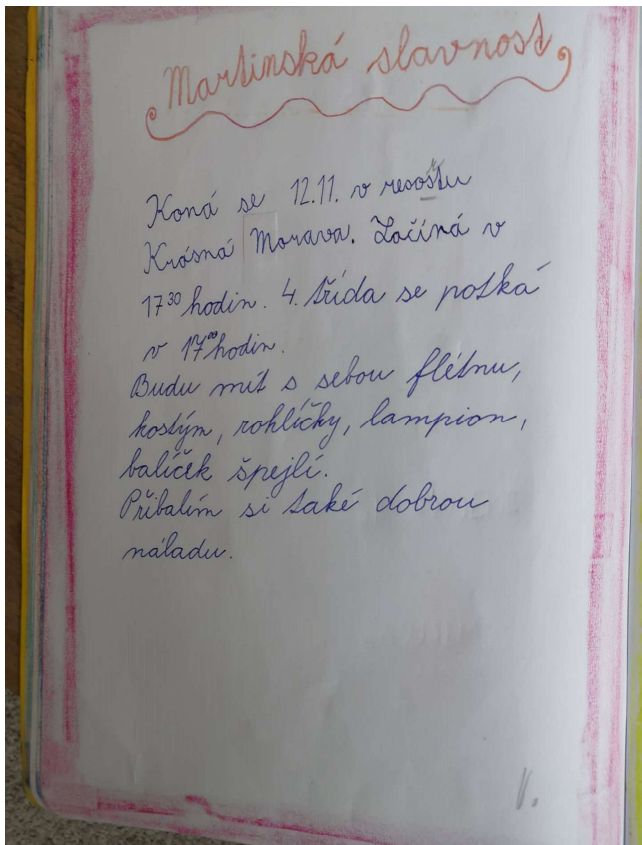 Martinská slavnost
Koná se 12.11. v resoštu
Krásná Morava. Začíná v
17³⁰ hodin. 4. třída se potká
v 17⁰⁰ hodin.
Budu mít s sebou flétnu,
kostým, rohlíčky, lampion,
balíček špejlí.
Přibalím si také dobrou
náladu.
V.